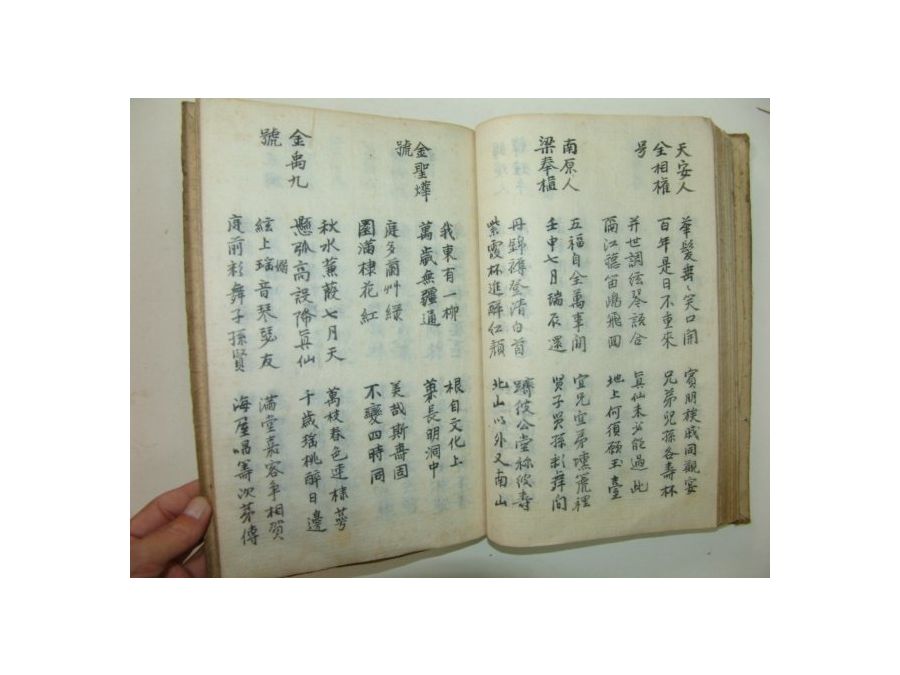 天安人
全相權
号
華髮〻笑口開
賓朋族戚同觀宴
百年是日不重來
兄弟兒孫各壽杯
并世調絃琴韻合
眞仙未必能過此
隔江聽笛鴻飛回
地上何須願玉臺
南原人
梁奉權
五福自全萬事閒
宜兄宜弟壎篪裡
壬申七月瑞辰還
賢子賢孫彩舞間
丹錦褥登清白首
躋彼公堂稱彼壽
紫霞杯進醉紅顔
北山以外又南山
金聖燁
號
我東有一柳
根自文化上
萬歲無疆通
葉長明洞中
庭多蘭艸綠
美哉斯壽固
園滿棣花紅
不變四時同
金禹九
號
秋水蒹葭七月天
萬枝春色連棣萼
懸弧高設降眞仙
千歲瑤桃醉日邊
絃上瑤音琴瑟友
滿堂嘉客爭相賀
庭前彩舞子孫賢
海屋唱籌次第傳